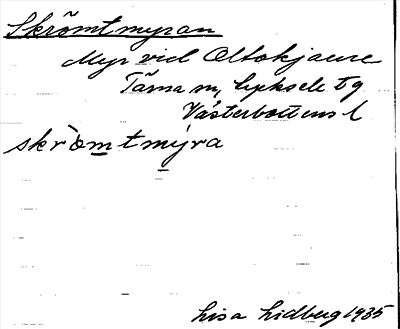 Skrömtmyran
Myr vid Oltokjaure
Tärna sn, Lycksele tg
Västerbottens l
skrömtmyra
Lisa Lidberg 1935